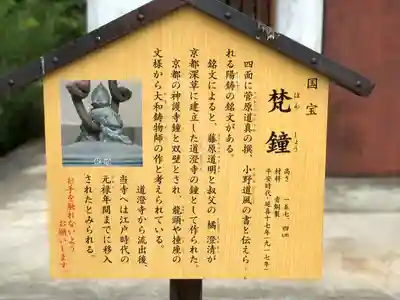 国宝
梵鐘
ぼん
しょう
高さ 一五七、四㎝
材料 青銅製
平安時代・延喜十七年(九一七年)
四面に菅原道真の撰、小野道風の書と伝えら
れる陽鋳の銘文がある。
銘文によると、藤原道明と叔父の橘澄清が
京都深草に建立した道澄寺の鐘として作られた。
京都の神護寺鐘と双壁とされ、龍頭や撞座の
文様から大和鋳物師の作と考えられている。
道澄寺から流出後、
当寺へは江戸時代の
元禄年間までに移入
されたとみられる。
お手を触れないよう
お願いします